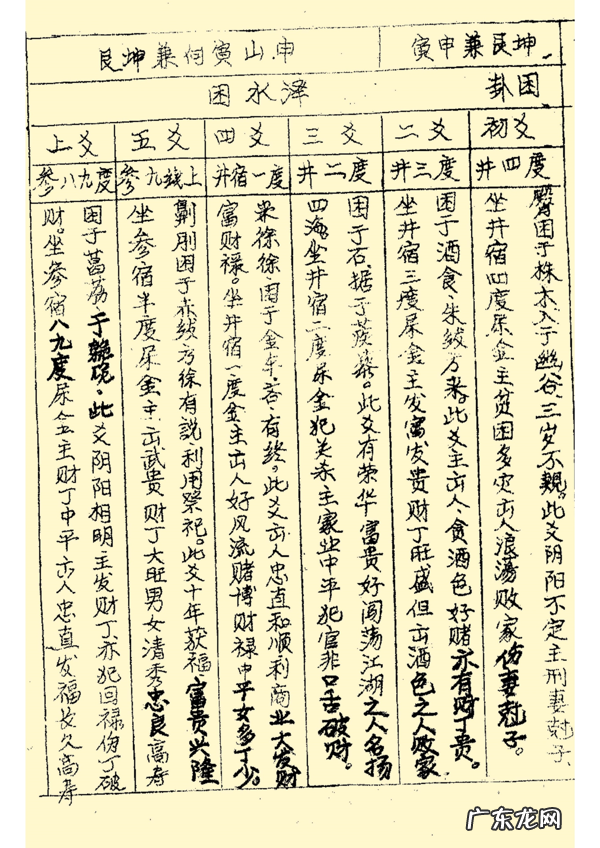 寅申兼艮坤
申山寅向兼坤艮
困卦
泽水困
初爻
井四度
臀困于株木入于幽谷、三岁不覿。此爻阴阳不定主刑妻尅子、
坐井宿四度尿金主贫困多灾出人浪荡败家伤妻尅子。
二爻
井三度
困于酒食、朱绂方来。此爻主出人、贪酒色好赌亦有财丁贵。
坐井宿三度尿金主发富发贵财丁旺盛但出酒色之人败家
三爻
井二度
困于石、据于蒺藜。此爻有荣华富贵好闯荡江湖之人名扬
四海坐井宿二度尿金犯关杀主家业中平犯官非口舌破财。
四爻
井宿一度
来徐徐、困于金车、吝、有终。此爻出人忠直和顺利商业大发财
富财禄。坐井宿一度金主出人好风流赌博财禄中平女多丁少。
五爻
参九钱上
劓刖困于赤绂乃徐有説利用祭祀。此爻十年获福富贵兴隆
坐参宿半度尿金主出武贵财丁大旺男女清秀忠良高寿
上爻
参八九度
困于葛藟、于臲卼、此爻阴阳相明主发财丁亦犯回禄伤丁破
财。坐参宿八九度尿金主财丁中平出人忠直发福长久高寿
广东龙网